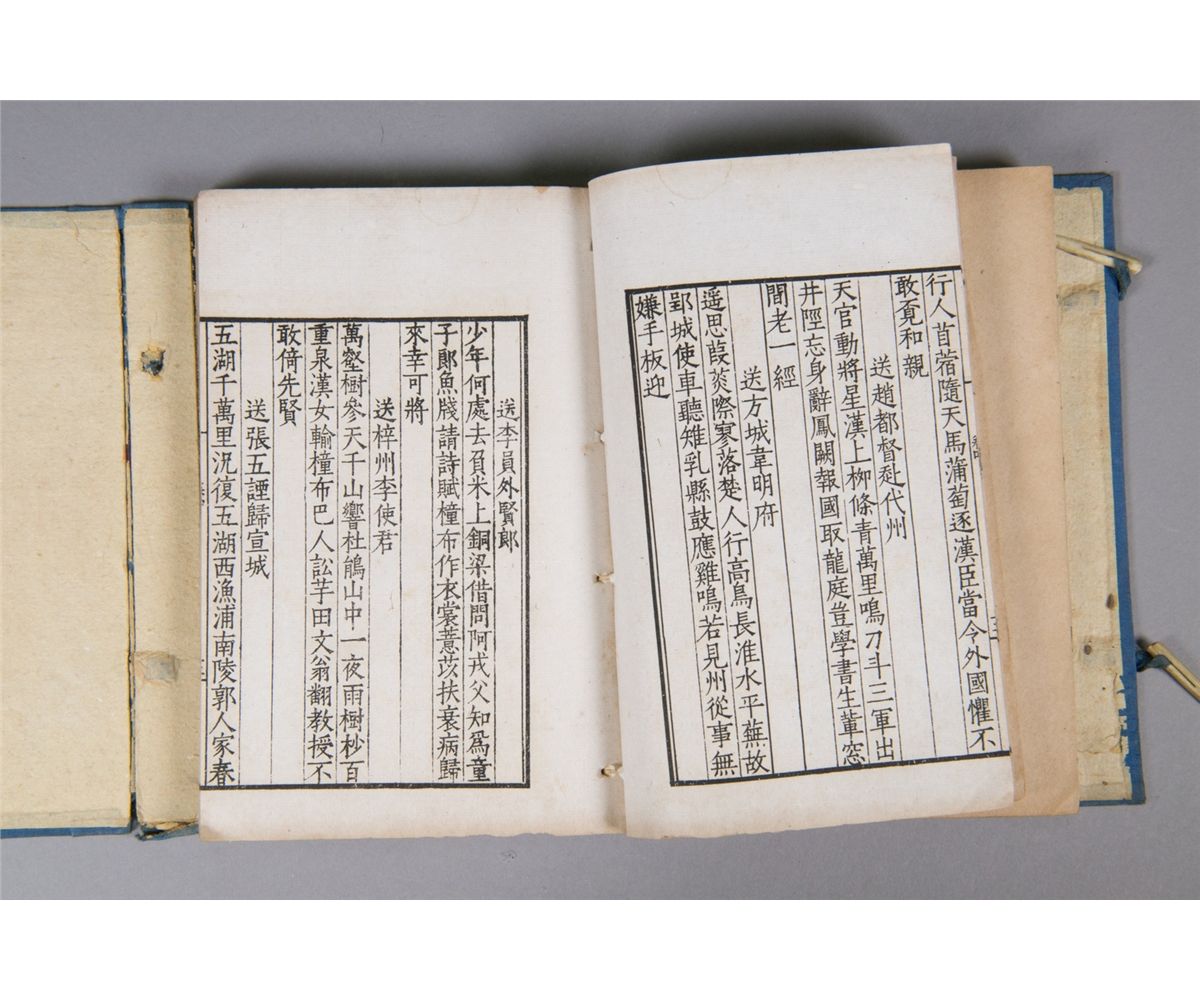 行人苜蓿隨天馬蒲萄逐漢臣當今外國懼不
敢覓和親
送趙都督赴代州
天官動將星漢上柳條青萬里鳴刀斗三軍出
井陘忘身辭鳳闕報國取龍庭豈學書生輩窓
間老一經
送方城韋明府
遥思葭菼際寥落楚人行高鳥長淮水平蕪故
郢城使車聽雉乳縣鼓應雞鳴若見州從事無
嫌手板迎
送李員外賢郎
少年何處去負米上銅梁借問阿戎父知爲童
子郎魚牋請詩賦橦布作衣裳薏苡扶衰病歸
來幸可將
送梓州李使君
萬壑樹參天千山響杜鵑山中一夜雨樹杪百
重泉漢女輸橦布巴人訟芋田文翁翻教授不
敢倚先賢
送張五諲歸宣城
五湖千萬里況復五湖西漁浦南陵郭人家春